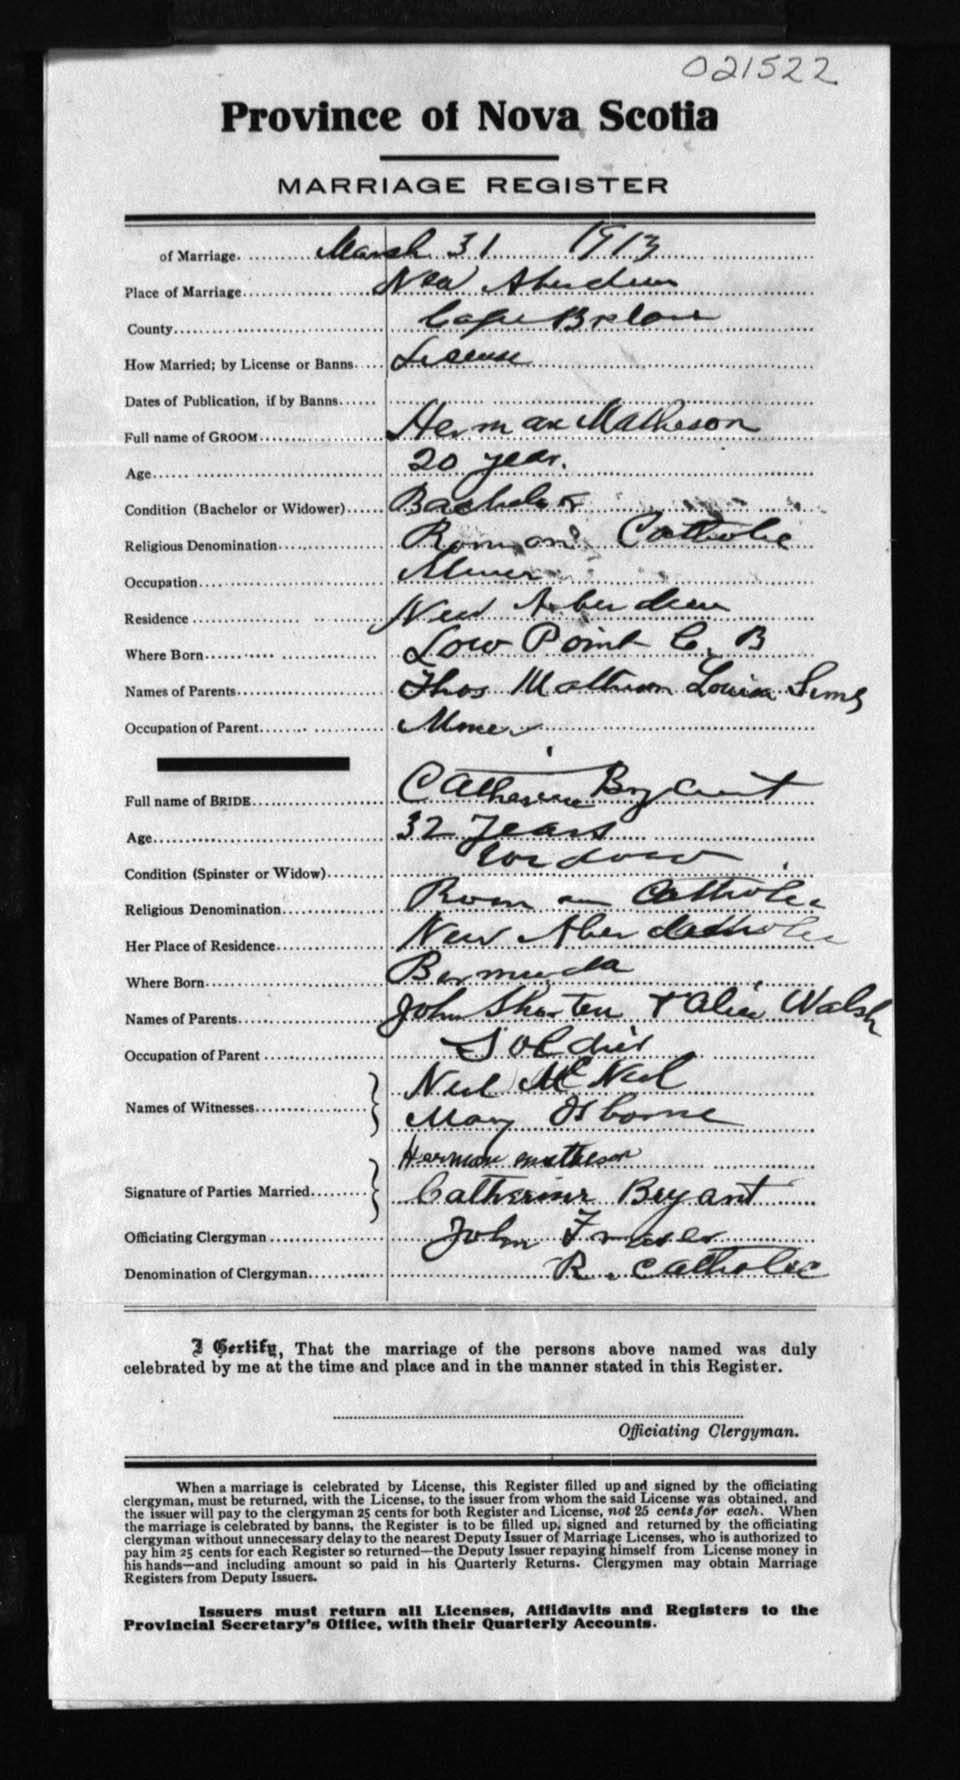 021522
Province of Nova Scotia
MARRIAGE REGISTER
of Marriage. March 31 1913
Place of Marriage New Aberdeen
County Cape Breton
How Married; by License or Banns License
Dates of Publication, if by Banns
Full name of GROOM Herman Matheson
Age 20 year.
Condition (Bachelor or Widower) Bachelor
Religious Denomination Roman Catholic
Occupation Miner
Residence New Aberdeen
Where Born Low Point C. B
Names of Parents Thos Matheson Louisa Sims
Occupation of Parent Miner
Full name of BRIDE Catherine Bryant
Age 32 years
Condition (Spinster or Widow) widow
Religious Denomination Roman Catholic
Her Place of Residence New Aber
Where Born Bermuda
Names of Parents John Shorten + Alice Walsh
Occupation of Parent Soldier
Names of Witnesses Neil McNeil
Mary Osborne
Herman matheson
Signature of Parties Married Catherine Bryant
Officiating Clergyman John Fraser
Denomination of Clergyman R. Catholic
I Certify, That the marriage of the persons above named was duly
celebrated by me at the time and place and in the manner stated in this Register.
Officiating Clergyman.
When a marriage is celebrated by License, this Register filled up and signed by the officiating
clergyman, must be returned, with the License, to the issuer from whom the said License was obtained, and
the issuer will pay to the clergyman 25 cents for both Register and License, not 25 cents for each. When
the marriage is celebrated by banns, the Register is to be filled up, signed and returned by the officiating
clergyman without unnecessary delay to the nearest Deputy Issuer of Marriage Licenses, who is authorized to
pay him 25 cents for each Register so returned—the Deputy Issuer repaying himself from License money in
his hands—and including amount so paid in his Quarterly Returns. Clergymen may obtain Marriage
Registers from Deputy Issuers.
Issuers must return all Licenses, Affidavits and Registers to the
Provincial Secretary's Office, with their Quarterly Accounts.